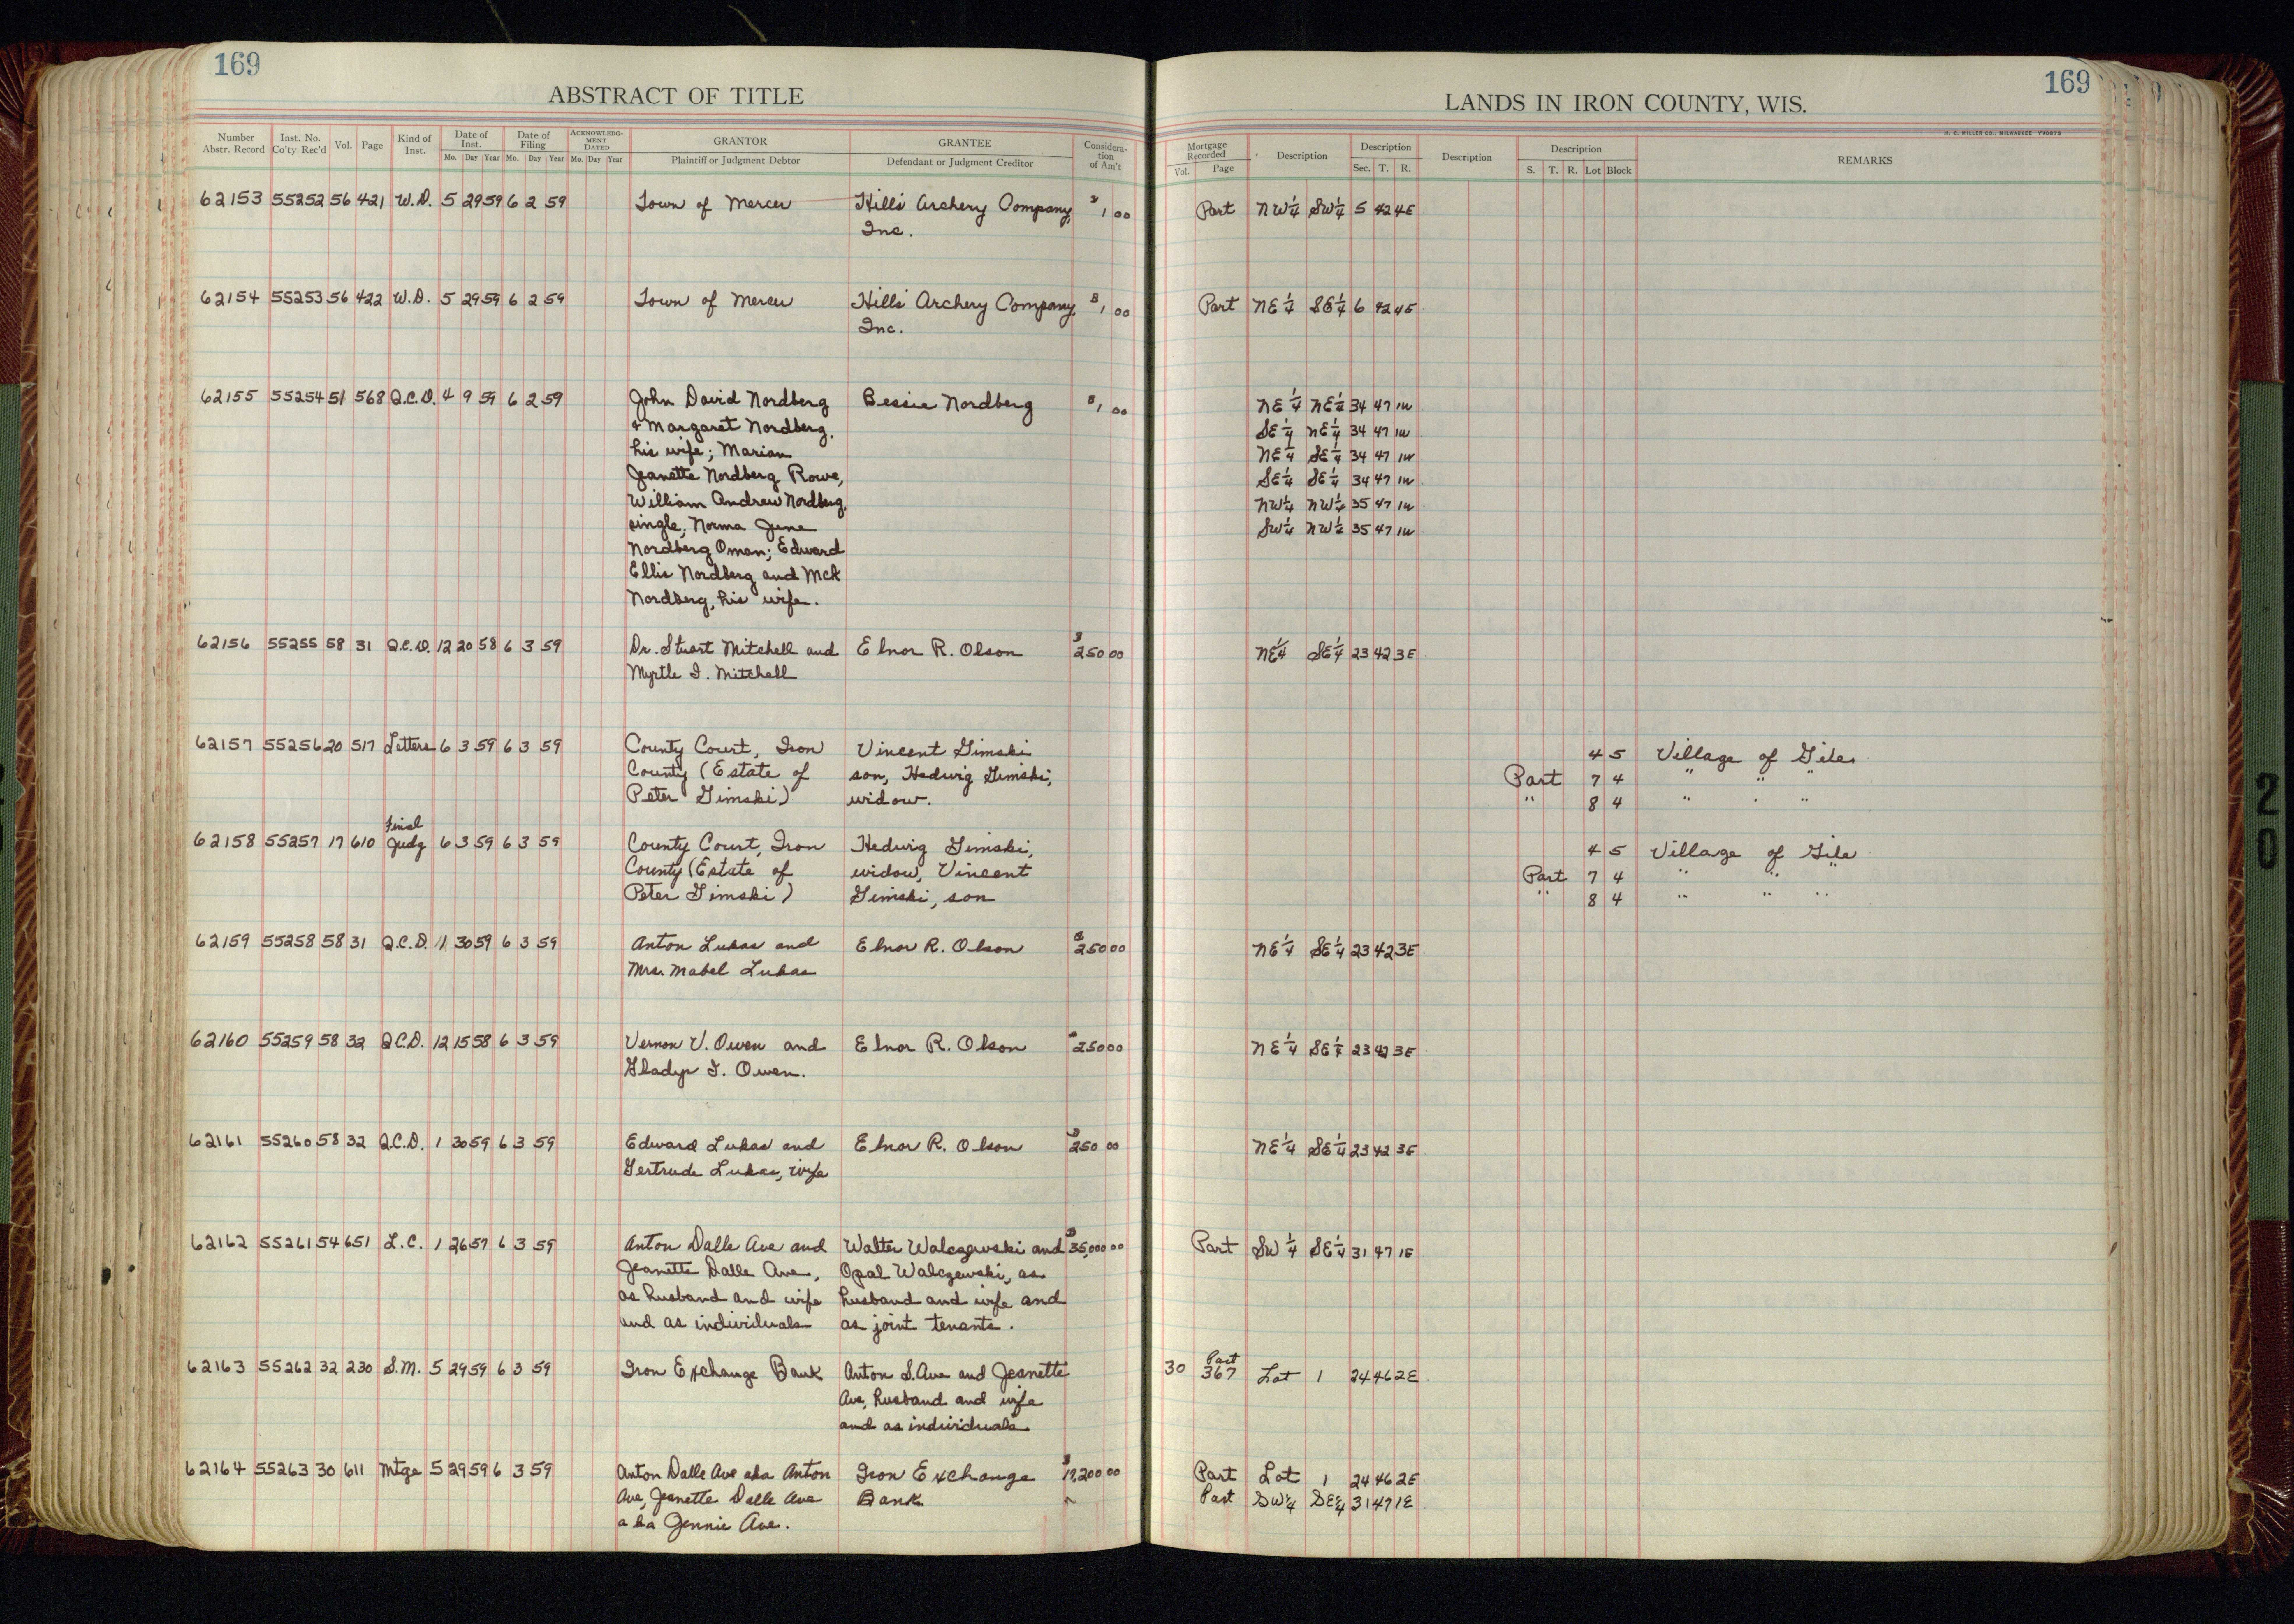 169
ABSTRACT OF TITLE
Number Abstr. Record Inst. No. Co'ty Rec'd Vol. Page Kind of Inst. Date of Inst. Mo. Day Year Date of Filing Mo. Day Year ACKNOWLEDGMENT DATED Mo. Day Year GRANTOR Plaintiff or Judgment Debtor GRANTEE Defendant or Judgment Creditor Consideration of Am't
62153 55252 56 421 W.D. 5 29 59 6 2 59 Town of Mercer Hills' Archery Company, $1 00
Inc.
62154 55253 56 422 W.D. 5 29 59 6 2 59 Town of Mercer Hills' Archery Company, $1 00
Inc.
62155 55254 51 568 Q.C.D. 4 9 59 6 2 59 John David Nordberg Bessie Nordberg $1 00
& Margaret Nordberg,
his wife; Marian
Jeanette Nordberg Rowe,
William Andrew Nordberg,
single, Norma June
Nordberg Oman; Edward
Ellis Nordberg and
Nordberg, his wife.
62156 55255 58 31 Q.C.D. 12 20 58 6 3 59 Dr. Stuart Mitchell and Elnor R. Olson $250 00
Myrtle I. Mitchell
62157 55256 20 517 Letters 6 3 59 6 3 59 County Court, Iron Vincent Gimski
County (Estate of son, Hedwig Gimski,
Peter Gimski) widow.
Final
62158 55257 17 610 Judg 6 3 59 6 3 59 County Court, Iron Hedwig Gimski,
County (Estate of widow, Vincent
Peter Gimski) Gimski, son
62159 55258 58 31 Q.C.D. 11 30 59 6 3 59 Anton Lukas and Elnor R. Olson $250 00
Mrs. Mabel Lukas
62160 55259 58 32 Q.C.D. 12 15 58 6 3 59 Vernon V. Owen and Elnor R. Olson $250 00
Gladys I. Owen.
62161 55260 58 32 Q.C.D. 1 30 59 6 3 59 Edward Lukas and Elnor R. Olson $250 00
Gertrude Lukas, wife
62162 55261 54 651 L.C. 1 26 57 6 3 59 Anton Dalle Ave and Walter Walczewski and $35,000 00
Jeanette Dalle Ave, Opal Walczewski, as
as husband and wife husband and wife and
and as individuals as joint tenants.
62163 55262 32 230 S.M. 5 29 59 6 3 59 Iron Exchange Bank Anton S. Ave and Jeanette
Ave, husband and wife
and as individuals
62164 55263 30 611 Mtge 5 29 59 6 3 59 Anton Dalle Ave aka Anton Iron Exchange $17,200 00
Ave, Jeanette Dalle Ave Bank
aka Jennie Ave.
169
LANDS IN IRON COUNTY, WIS.
H. C. MILLER CO., MILWAUKEE
Mortgage Recorded Vol. Page Description Description Sec. T. R. Description Description S. T. R. Lot Block REMARKS
Part NW¼ SW¼ 5 42 4E
Part NE¼ SE¼ 6 42 4E
NE¼ NE¼ 34 47 1W
SE¼ NE¼ 34 47 1W
NE¼ SE¼ 34 47 1W
SE¼ SE¼ 34 47 1W
NW¼ NW¼ 35 47 1W
SW¼ NW¼ 35 47 1W
NE¼ SE¼ 23 42 3E
4 5 Village of Gile
Part 7 4 " " "
" 8 4 " " "
4 5 Village of Gile
Part 7 4 " " "
" 8 4 " " "
NE¼ SE¼ 23 42 3E
NE¼ SE¼ 23 42 3E
NE¼ SE¼ 23 42 3E
Part SW¼ SE¼ 31 47 1E
Part
30 367 Lot 1 24 46 2E
Part Lot 1 24 46 2E
Part SW¼ SE¼ 31 47 1E
20